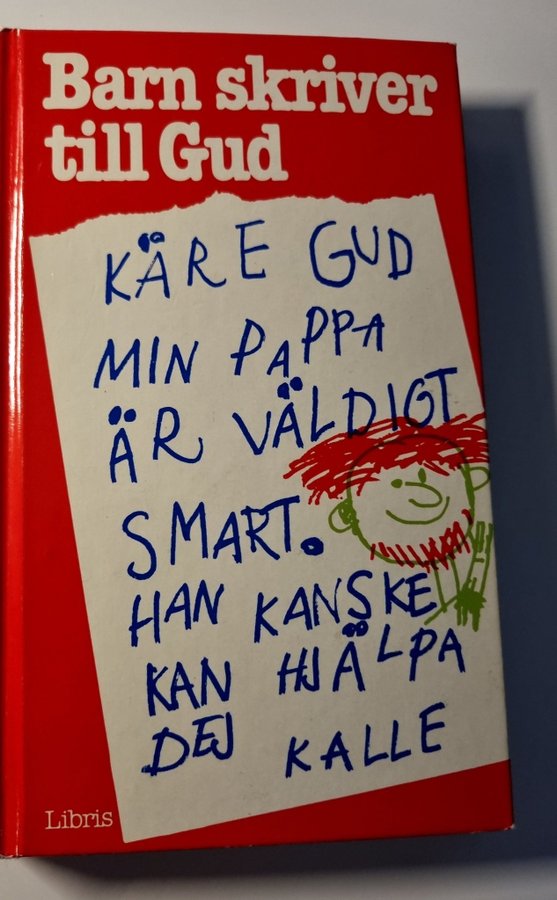 Barn skriver
till Gud
KÄRE GUD
MIN PAPPA
ÄR VÄLDIGT
SMART.
HAN KANSKE
KAN HJÄLPA
DEJ KALLE
Libris